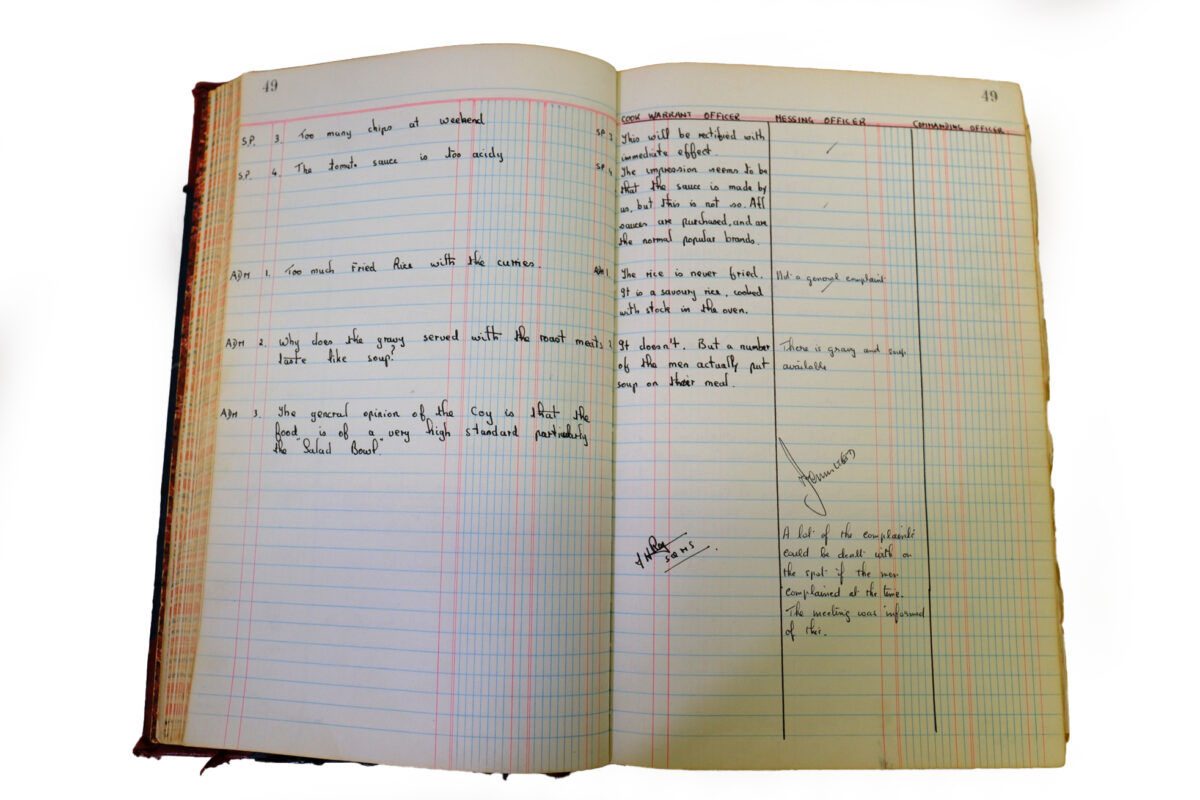 49
S.P. 3. Too many chips at weekend
S.P. 4. The tomato sauce is too acidy
ADM 1. Too much Fried Rice with the curries.
ADM 2. Why does the gravy served with the roast meats
taste like soup?
ADM 3. The general opinion of the Coy is that the
food is of a very high standard particularly
the "Salad Bowl."
49
COOK WARRANT OFFICER
MESSING OFFICER
COMMANDING OFFICER
SP 3
This will be rectified with
immediate effect.
SP 4
The impression seems to be
that the sauce is made by
us, but this is not so. All
sauces are purchased, and are
the normal popular brands.
ADM 1.
The rice is never fried.
It is a savoury rice, cooked
with stock in the oven.
Not a general complaint
2.
It doesn't. But a number
of the men actually put
soup on their meal.
There is gravy and soup
available
SQMS
A lot of the complaints
could be dealt with on
the spot if the men
complained at the time.
The meeting was informed
of this.